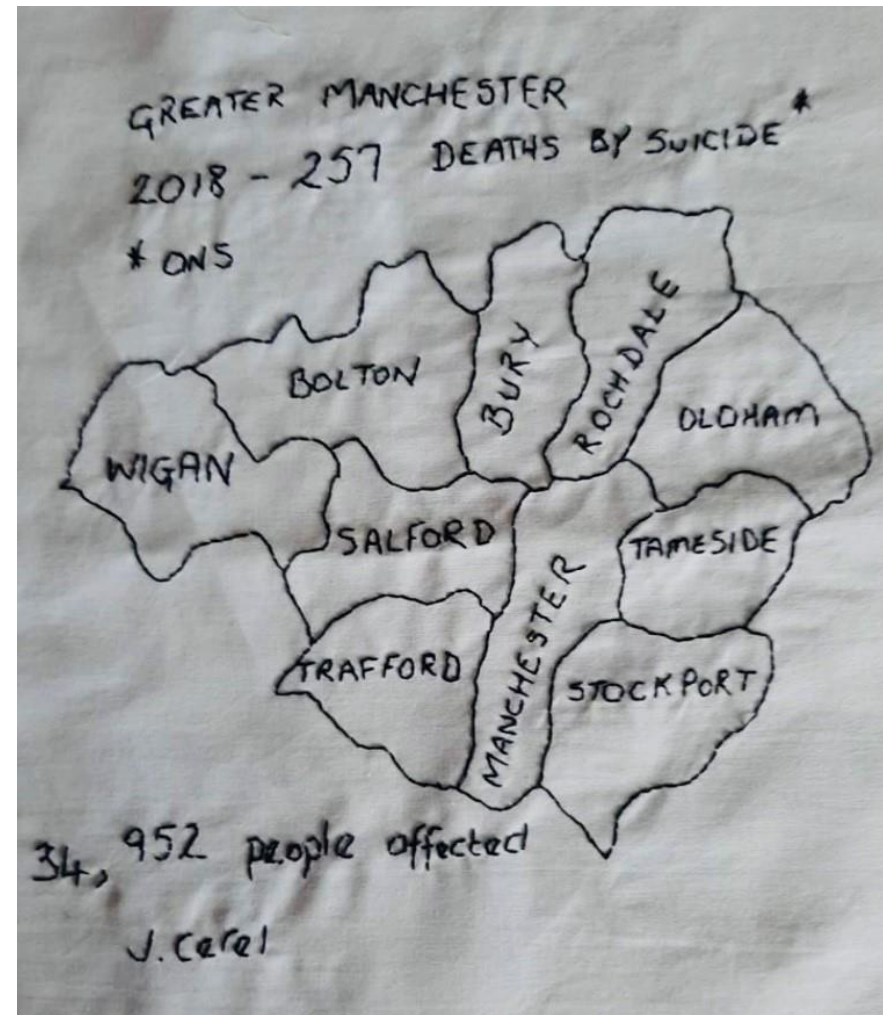 GREATER MANCHESTER
2018 - 257 DEATHS BY SUICIDE*
* ONS
BOLTON
BURY
ROCHDALE
OLDHAM
WIGAN
SALFORD
TAMESIDE
MANCHESTER
TRAFFORD
STOCKPORT
34,952 people affected
J. Cerel